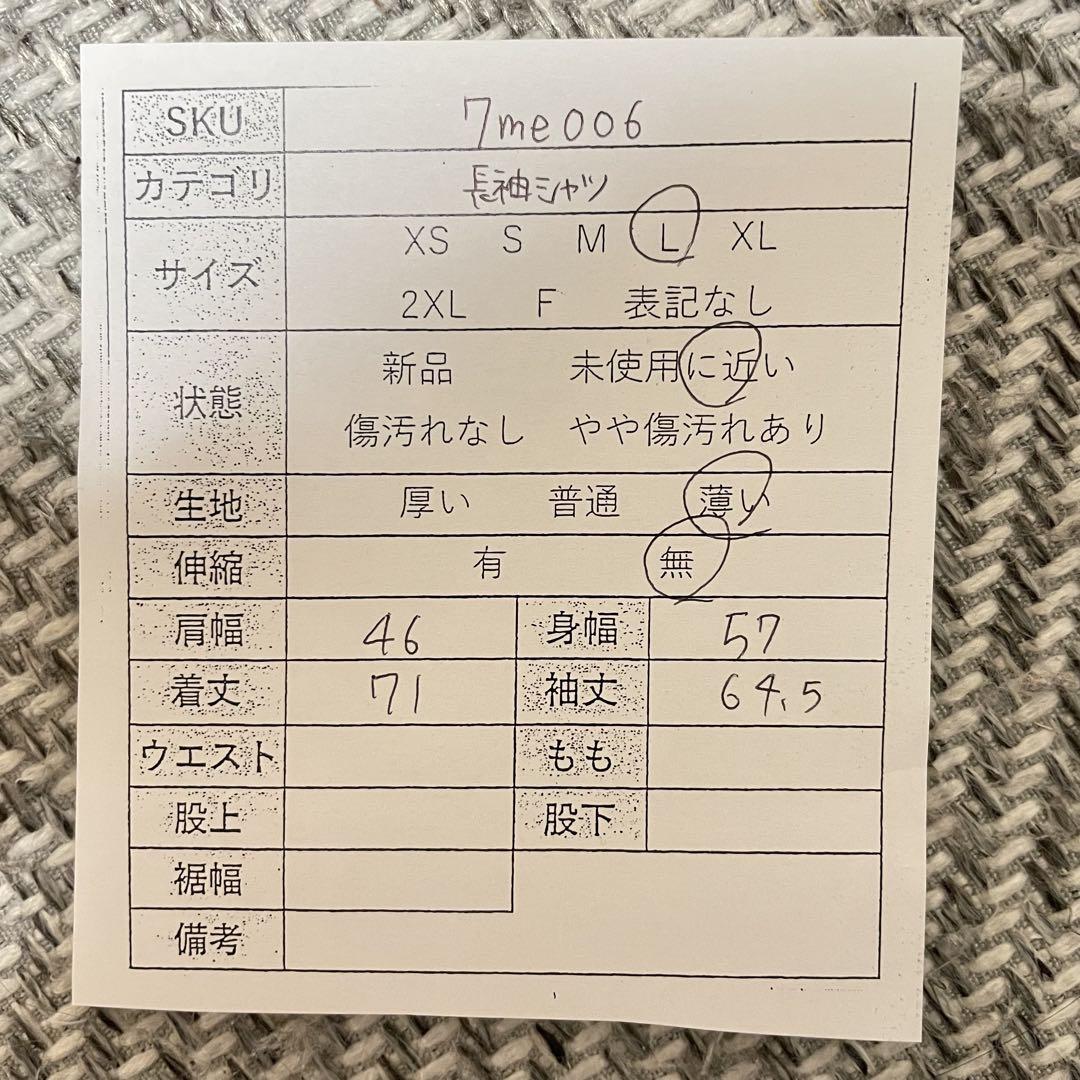 SKU 7me006
カテゴリ 長袖シャツ
サイズ XS S M L XL
2XL F 表記なし
状態 新品 未使用に近い
傷汚れなし やや傷汚れあり
生地 厚い 普通 薄い
伸縮 有 無
肩幅 46 身幅 57
着丈 71 袖丈 64.5
ウエスト もも
股上 股下
裾幅
備考